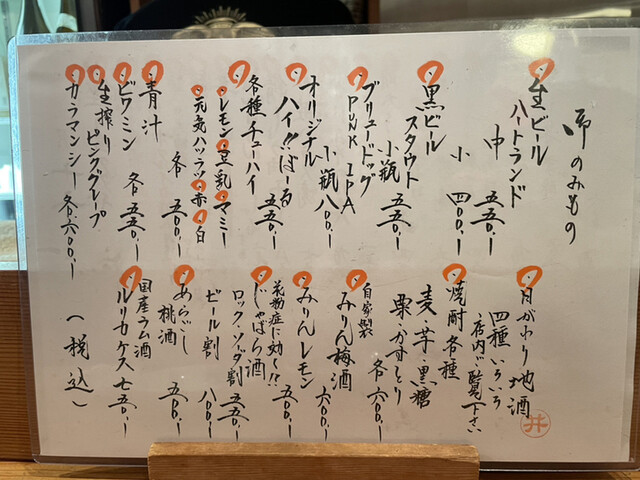 御のみもの
生ビール
ハートランド
中 五五〇.ー
小 四〇〇.ー
黒ビール
スタウト
小瓶 五五〇.ー
ブリュードッグ
PUNK IPA
小瓶 八〇〇.ー
オリジナル
ハイ!!ばーる
五五〇.ー
各種チューハイ
レモン・豆乳・マミー
元気ハツラツ・赤・白
各 五〇〇.ー
青汁
ビワミン
各 五五〇.ー
生搾り
ピングレープ
カラマンシー 各六〇〇.ー
日がわり地酒
四種いろいろ
店内ご覧下さい
井
焼酎各種
麦・芋・黒糖
栗・かすとり
各 六〇〇.ー
自家製
みりん梅酒
六〇〇.ー
みりんレモン
五〇〇.ー
花粉症に効く!?
じゃばら酒
ロック・ソーダ割
五五〇.ー
ビール割 八〇〇.ー
あらごし
桃酒
五〇〇.ー
国産ラム酒
ルリカケス 七五〇.ー
(税込)